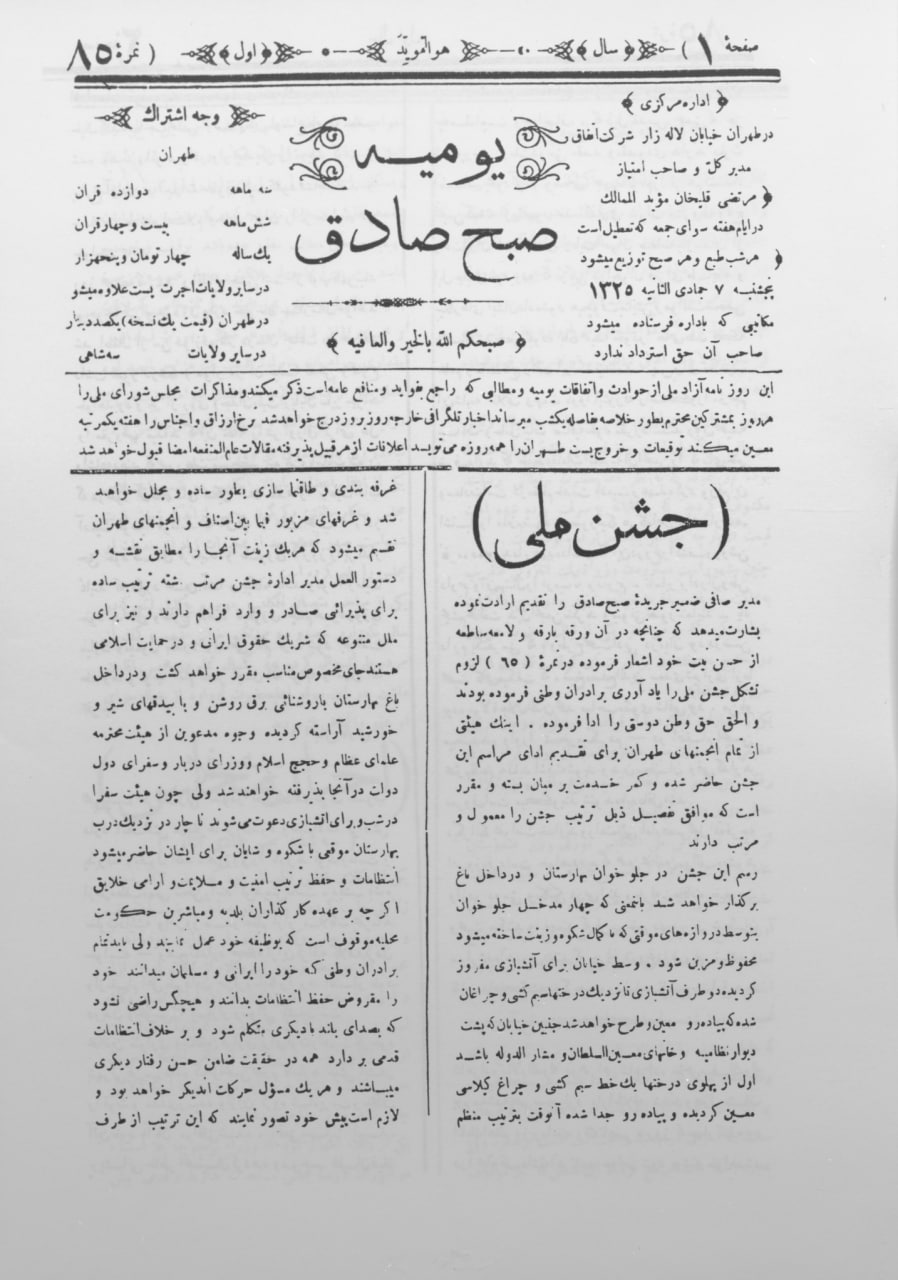 صفحهٔ ۱ ) ﴿ سال ﴾ هوالمؤید ﴿ اول ﴾ ( نمرهٔ ۸۵
﴿ اداره مرکزی ﴾
در طهران خیابان لاله زار شرکت اتفاق
مدیر کل و صاحب امتیاز
﴿ مرتضی قلیخان مؤید الممالک
در ایام هفته سوای جمعه که تعطیل است
﴿ هر شب طبع و هر صبح توزیع میشود
پنجشنبه ۷ جمادی الثانیه ۱۳۲۵
مکاتیبی که باداره فرستاده میشود
صاحب آن حق استرداد ندارد
یومیه
صبح صادق
﴿ صبحکم الله بالخیر والعافیه ﴾
وجه اشتراك
طهران
سه ماهه دوازده قران
شش ماهه بیست و چهار قران
یك ساله چهار تومان و پنجهزار
در سایر ولایات اجرت پست علاوه میشو
در طهران (قیمت یك نسخه) یکصد دینار
در سایر ولایات سه شاهی
این روز نامه آزاد ملی از حوادث و اتفاقات یومیه و مطالبی که راجع بفواید و منافع عامه است ذکر میکند و مذاکرات مجلس شورای ملی را
هر روز بمشترکین محترم بطور خلاصه بفاصله یکشب میرساند اخبار تلگرافی خارجه روز بروز درج خواهد شد نرخ ارزاق و اجناس را هفته یکمرتبه
معین میکند توقیعات و خروج پست طهران را همه روزه می نویسد اعلانات از هر قبیل پذیرفته مقالات عام المنفعه امضا قبول خواهد شد
(جشن ملی)
مدیر صافی ضمیر جریدهٔ صبح صادق را تقدیم ارادت نموده
بشارت میدهد که چنانچه در آن ورقه بارقه و لامعه ساطعه
از حسن نیت خود اشعار فرموده در نمرهٔ ( ٦٥ ) لزوم
تشکل جشن ملی را یاد آوری برادران وطنی فرموده بودند
و الحق حق وطن دوستی را ادا فرموده . اینك هیئتی
از تمام انجمنهای طهران برای تقدیم ادای مراسم این
جشن حاضر شده و کمر خدمت بر میان بسته و مقرر
است که موافق تفصیل ذیل ترتیب جشن را معمول و
مرتب دارند
رسم این جشن در جلو خوان بهارستان و در داخل باغ
برگذار خواهد شد بانضمنی که چهار مدخل جلو خوان
بتوسط دروازه های موقتی که با کمال شکوه و زینت ساخته میشود
محفوظ و مزین شود . وسط خیابان برای آتشبازی مفروز
گردیده دو طرف آتشبازی تا نزدیك درختها سیم کشی و چراغان
شده که پیاده رو معین و طرح خواهد شد چنین خیابان که پشت
دیوار نظامیه و خانهای معین السلطان و مشار الدوله باشد
اول از پهلوی درختها یك خط سیم کشی و چراغ گیلاسی
معین گردیده و پیاده رو جدا شده آنوقت بترتیب منظم
غرفه بندی و طاقنما سازی بطور ساده و مجلل خواهد
شد و غرفهای مزبور فیما بین اصناف و انجمنهای طهران
تقسیم میشود که هر یك زینت آنجا را مطابق نقشه و
دستور العمل مدیر ادارهٔ جشن مرتب شته ترتیب ساده
برای پذیرائی صادر و وارد فراهم دارند و نیز برای
ملل متنوعه که شریك حقوق ایرانی و در حمایت اسلامی
هستند جای مخصوص مناسب مقرر خواهد گشت و در داخل
باغ بهارستان با روشنائی برق روشن و با بیدقهای شیر و
خورشید آراسته گردیده وجوه مدعوین از هیئت محترمه
علمای عظام و حجج اسلام و وزرای دربار و سفرای دول
دوات در آنجا پذیرفته خواهند شد ولی چون هیئت سفرا
در شب و برای آتشبازی دعوت می شوند ناچار در نزدیك درب
بهارستان موقعی با شکوه و شایان برای ایشان حاضر میشود
انتظامات و حفظ ترتیب امنیت و ملایمت و ارامی خلایق
اگر چه بر عهده کار گذاران بلدیه و مباشرین حکومت
محلیه موقوف است که بوظیفه خود عمل نمایند ولی باید تمام
برادران وطنی که خود را ایرانی و مسلمان میدانند خود
را مقروض حفظ انتظامات بدانند و هیچکس راضی نشود
که بصدای بلند با دیگری متکلم شود و بر خلاف انتظامات
قدمی بر دارد همه در حقیقت ضامن حسن رفتار دیگری
میباشند و هر یك مسؤل حرکات اندیگر خواهد بود و
لازم است پیش خود تصور نمایند که این ترتیب از طرف